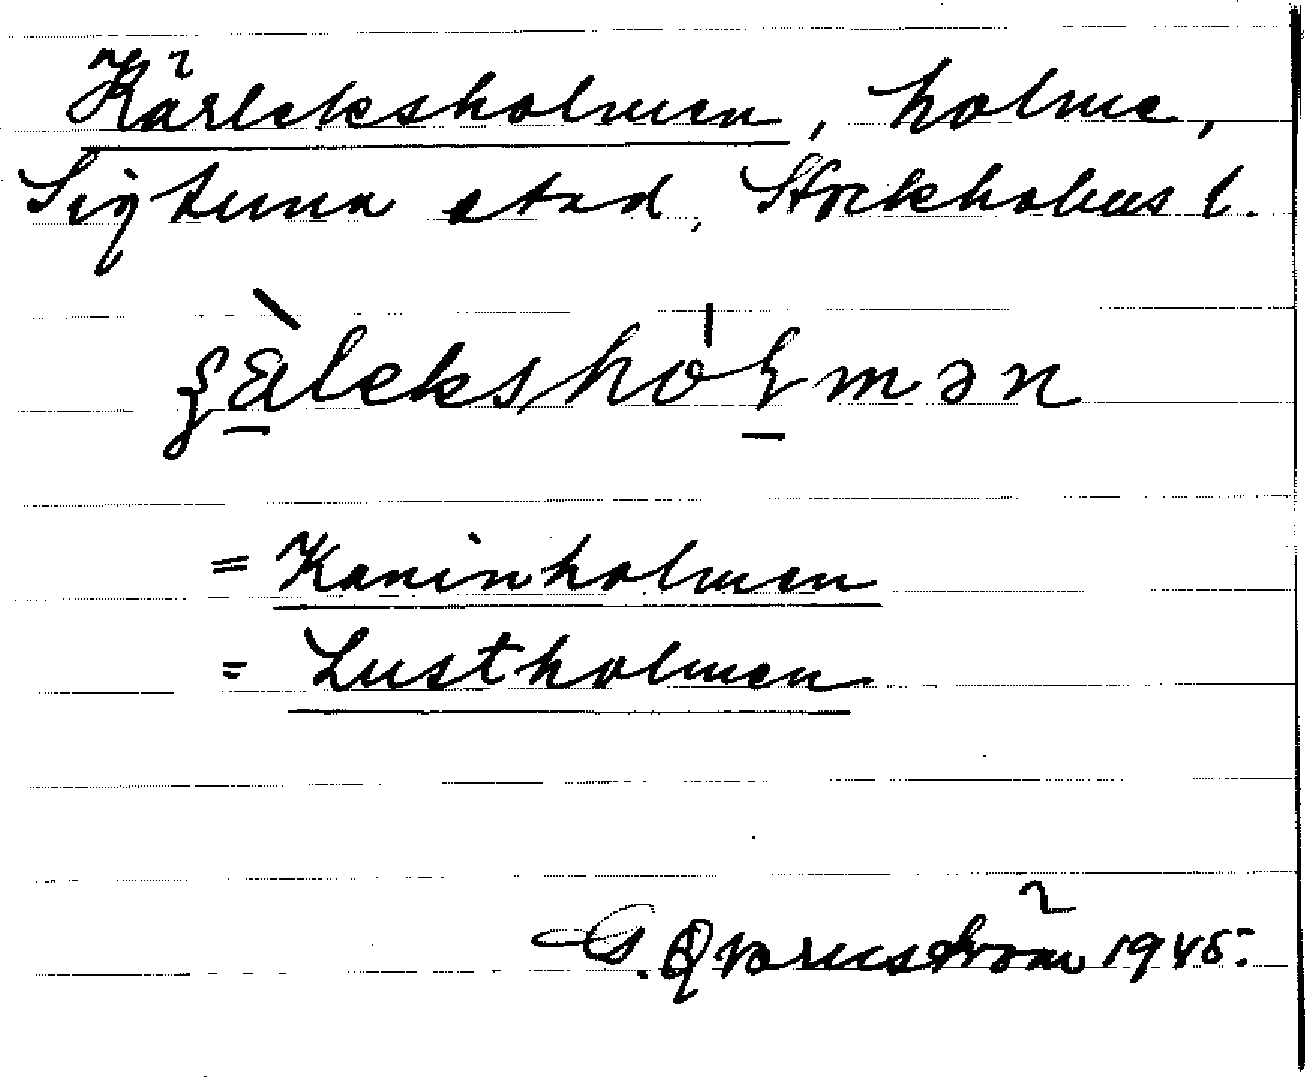 Kärleksholmen, holme,
Sigtuna stad, Stockholms l.
= Kaninholmen
= Lustholmen
G. Qvarnström 1945.